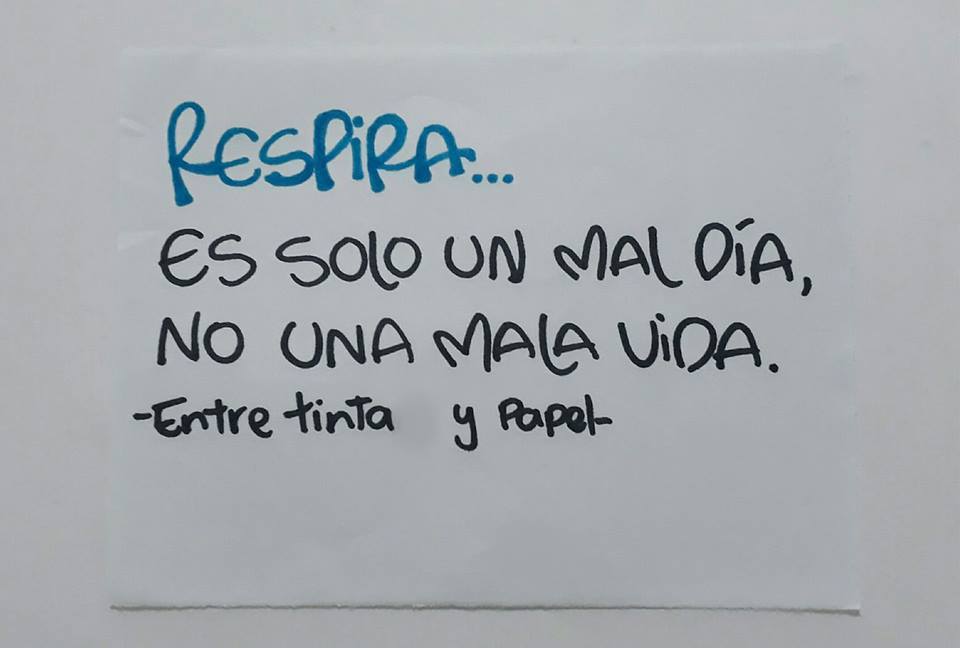 RESPIRA...
ES SOLO UN MAL DÍA,
NO UNA MALA VIDA.
-Entre tinta y Papel-